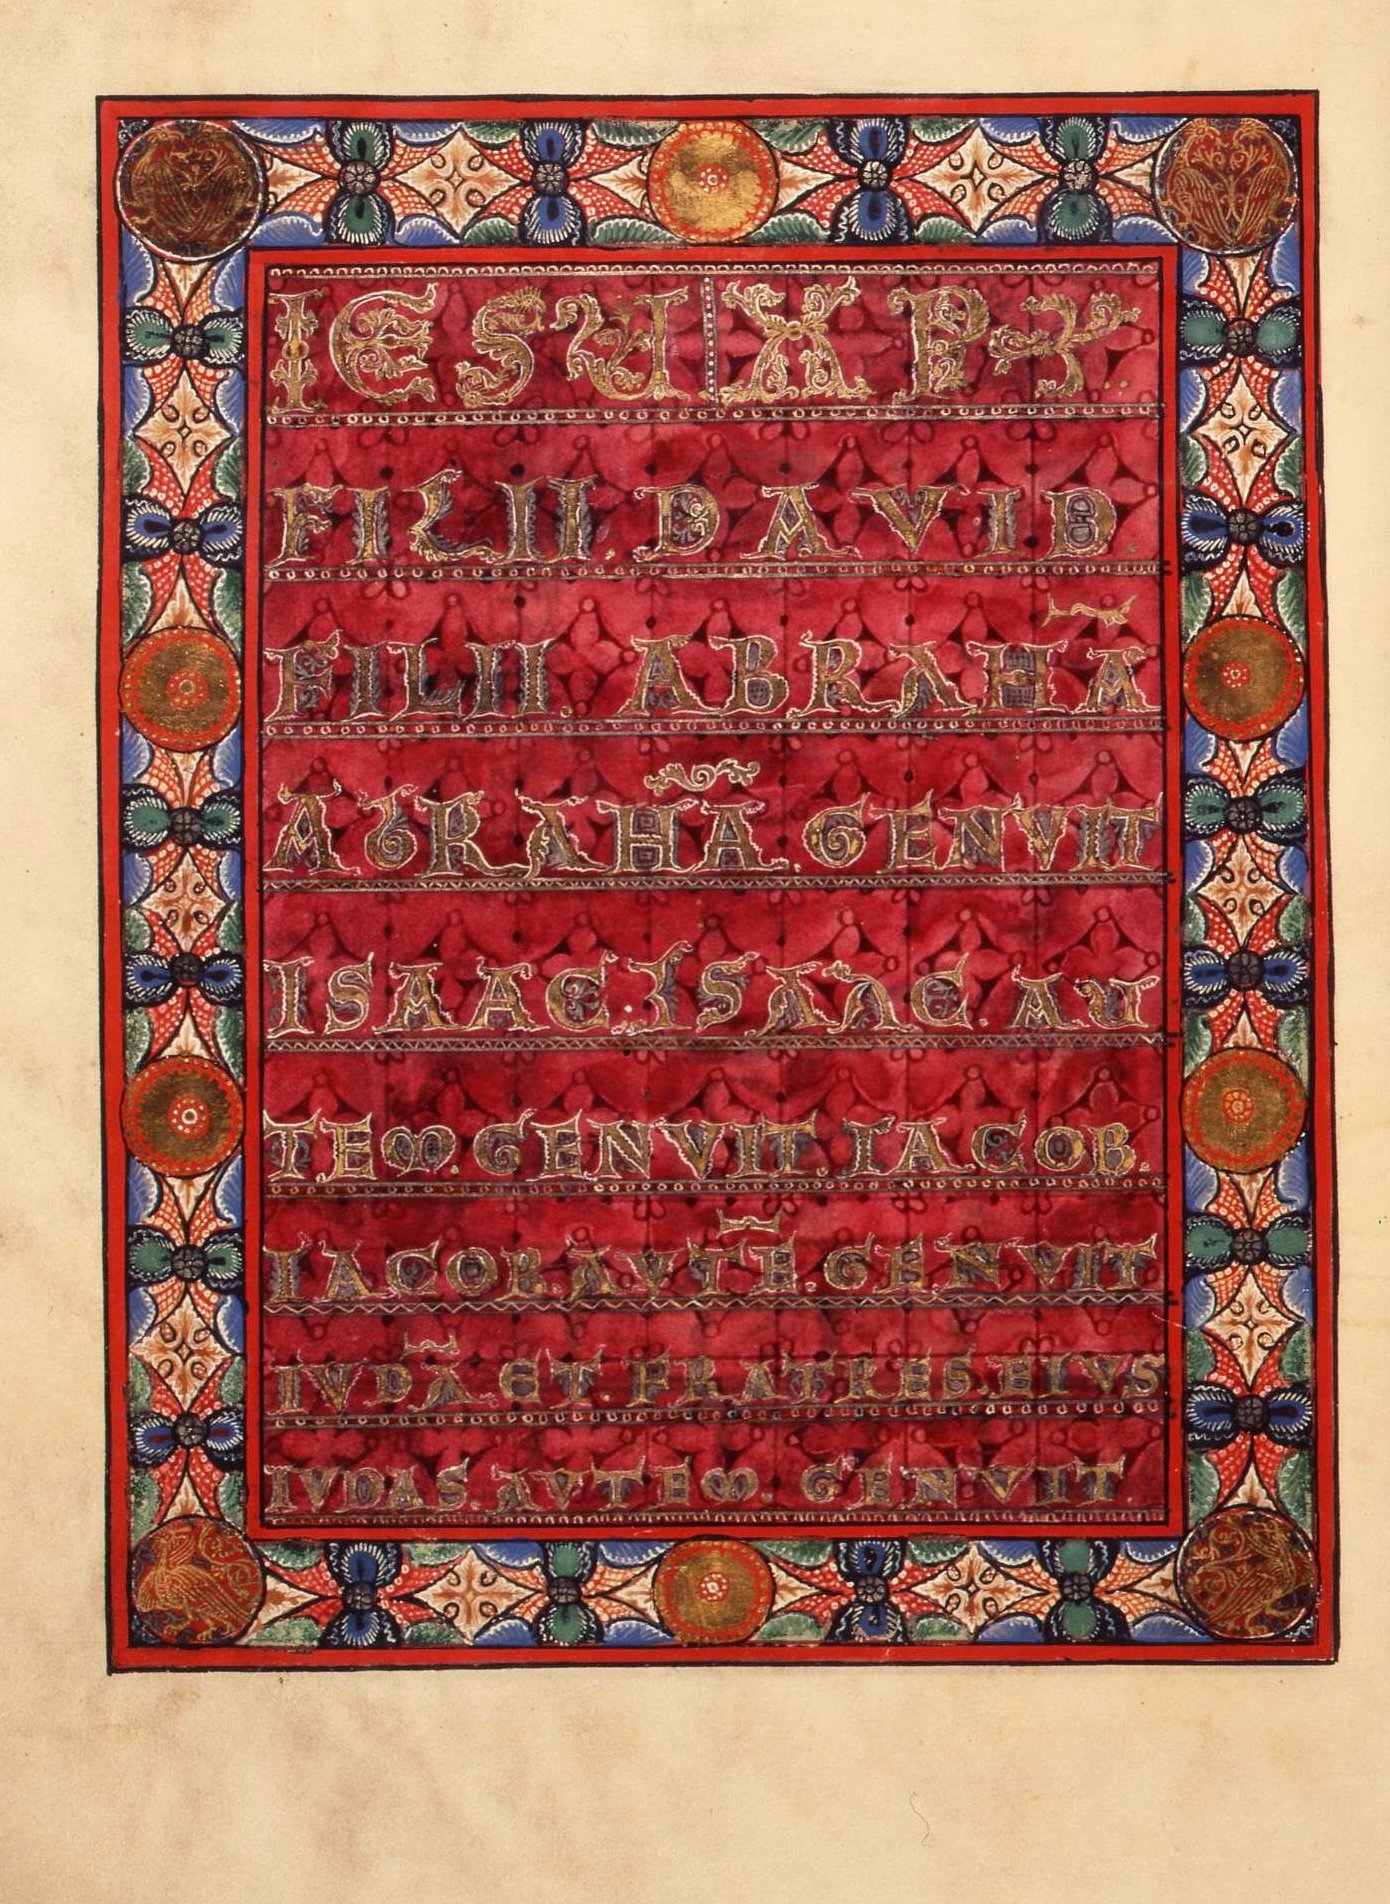 IESU XPI
FILII. DAVID
FILII. ABRAHĀ
ABRAHĀ. GENVIT
ISAAC. ISAAC AU
TEM. GENVIT. IACOB.
IACOB. AVTĒ. GENVIT
IVDĀ ET FRATRES. EIVS
IVDAS. AVTEM. GENVIT